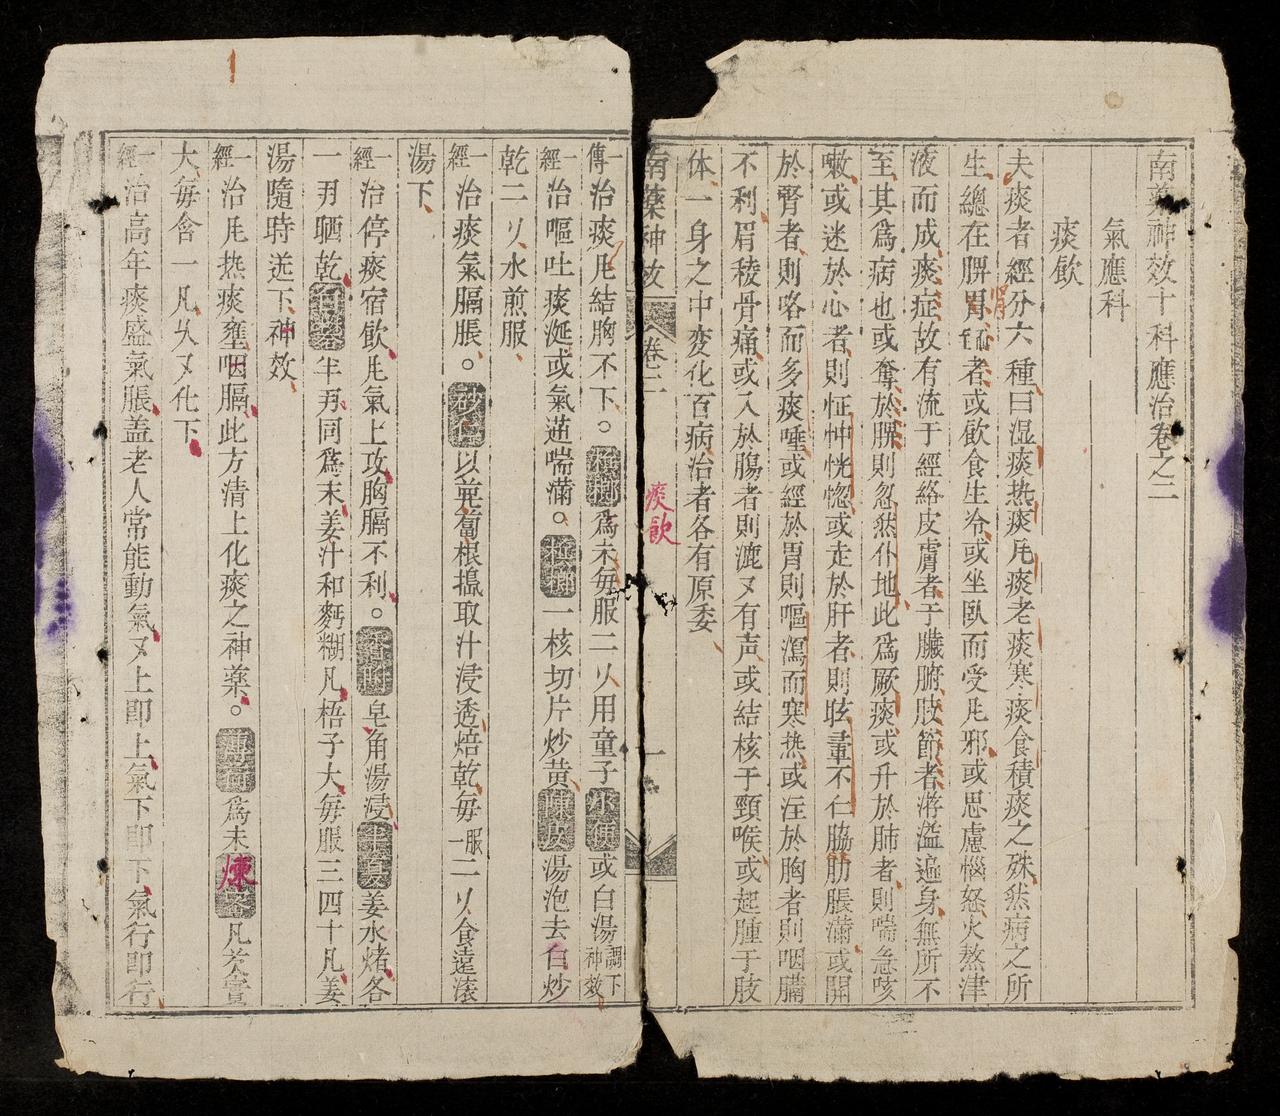 南藥神效十科應治卷之二
氣應科
痰飲
夫痰者經分六種曰湿痰热痰凨痰老痰寒痰食積痰之殊然病之所
生總在脾胃虚者或飲食生冷或坐臥而受凨邪或思慮惱怒火熬津
液而成痰症故有流于經絡皮膚者于臟腑肢節者滸溢遍身無所不
至其爲病也或奪於脾則忽然仆地此爲厥痰或升於肺者則喘急咳
嗽或迷於心者則怔忡恍惚或走於肝者則眩暈不仁脇肋脹滿或開
於腎者則咯而多痰唾或經於胃則嘔瀉而寒热或注於胸者則咽膈
不利眉稜骨痛或入於腸者則漉又有声或結核于頸喉或起腫于肢
体一身之中変化百病治者各有原委
南藥神效
卷二
一
痰飲
一傳治痰凨結胸不下。檳榔爲末每服二𠆧用童子小便或白湯調下神效
一經治嘔吐痰涎或氣逆喘滿。檳榔一核切片炒黄陳皮湯泡去白炒
乾二𠆧水煎服
一經治痰氣膈脹。砂仁以萊蔔根搗取汁浸透焙乾每一服二𠆧食遠滚
湯下
一經治停痰宿飲凨氣上攻胸膈不利。香附皂角湯浸半夏姜水㷩各
一㓁晒乾白礬半㓁同爲末姜汁和麪糊凡梧子大每服三四十凡姜
湯隨時送下神效
一經治凨热痰壅咽膈此方清上化痰之神藥。薄荷爲末煉蜜凡芡實
大每含一凡久又化下
一經治高年痰盛氣脹盖老人常能動氣又上即上氣下即下氣行即行